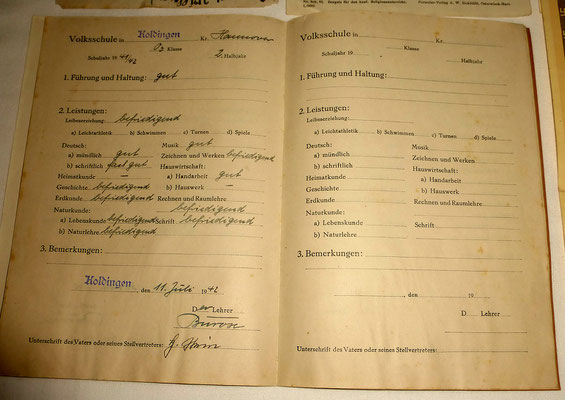 Volksschule in Koldingen Kr. Hannover
O2 Klasse
Schuljahr 1941/42 2. Halbjahr
1. Führung und Haltung: gut
2. Leistungen:
Leibeserziehung: befriedigend
a) Leichtathletik b) Schwimmen c) Turnen d) Spiele
Deutsch: Musik gut
a) mündlich gut Zeichnen und Werken befriedigend
b) schriftlich fast gut Hauswirtschaft:
Heimatkunde — a) Handarbeit gut
Geschichte befriedigend b) Hauswerk —
Erdkunde befriedigend Rechnen und Raumlehre
Naturkunde: befriedigend
a) Lebenskunde befriedigend Schrift befriedigend
b) Naturlehre befriedigend
3. Bemerkungen:
Koldingen, den 11. Juli 1942
Der Lehrer
Unterschrift des Vaters oder seines Stellvertreters:
Volksschule in Kr.
Klasse
Schuljahr 19 Halbjahr
1. Führung und Haltung:
2. Leistungen:
Leibeserziehung:
a) Leichtathletik b) Schwimmen c) Turnen d) Spiele
Deutsch: Musik
a) mündlich Zeichnen und Werken
b) schriftlich Hauswirtschaft:
Heimatkunde a) Handarbeit
Geschichte b) Hauswerk
Erdkunde Rechnen und Raumlehre
Naturkunde:
a) Lebenskunde Schrift
b) Naturlehre
3. Bemerkungen:
, den 19
D Lehrer
Unterschrift des Vaters oder seines Stellvertreters: